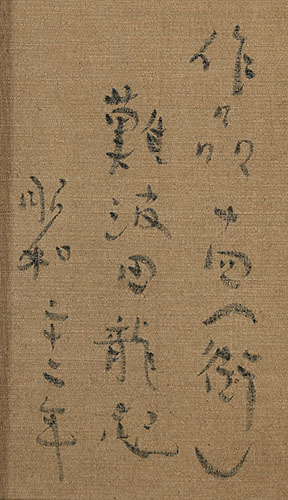 作品十四(街)
難波田龍起
昭和三十二年